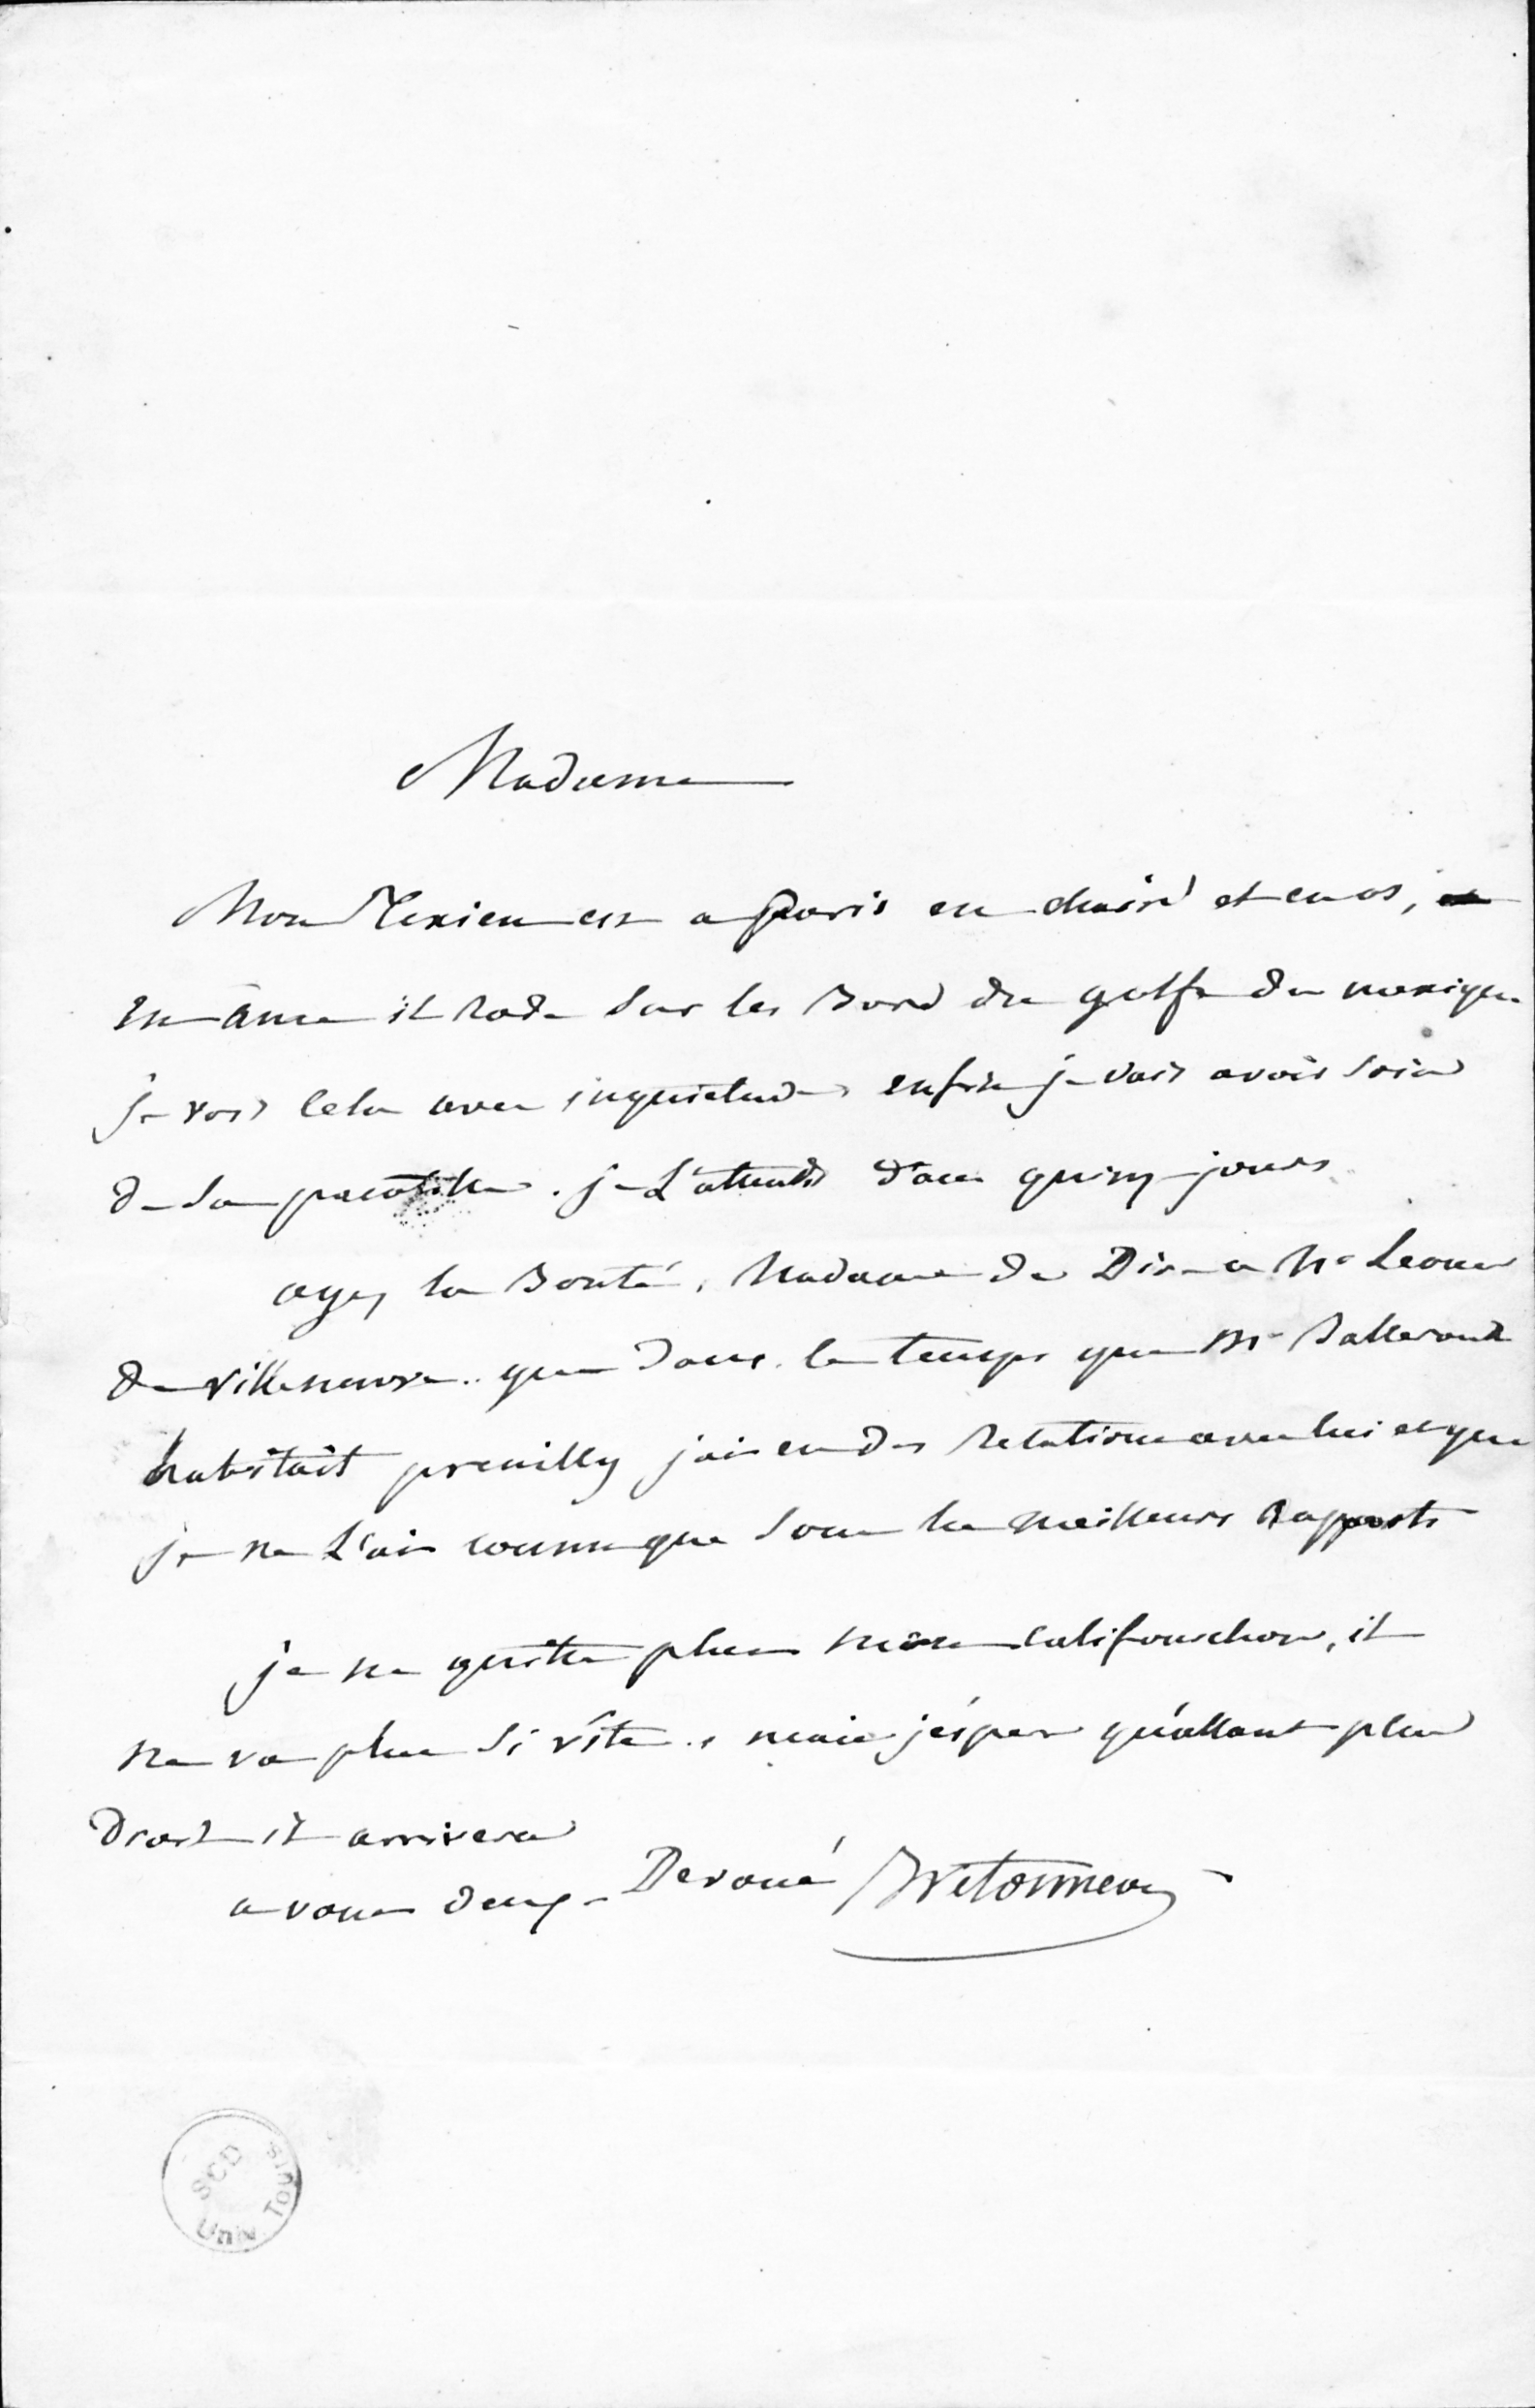 Madame
Mon Mexicain est a Paris en chair et en os,
en âme il rode sur les bord du golfe du mexique
je vois cela avec inquietude enfin je vais avoir soin
de sa pacotille. je L'attends dans quinze jours
ayez la bonté, Madame de Dire a Mr Leonce
de villeneuve.. que dans le temps que Mr Sallerand
habitait preuilly j'ai eu des relations avec lui et que
je ne L'ai connu que sous les meilleurs Rapports
je ne quitte plus mon califourchon, il
ne va plus si vîte.. mais j'espere qu'allant plus
Droit il arrivera
a vous deux Devoué Bretonneau
SCD
Univ Tours